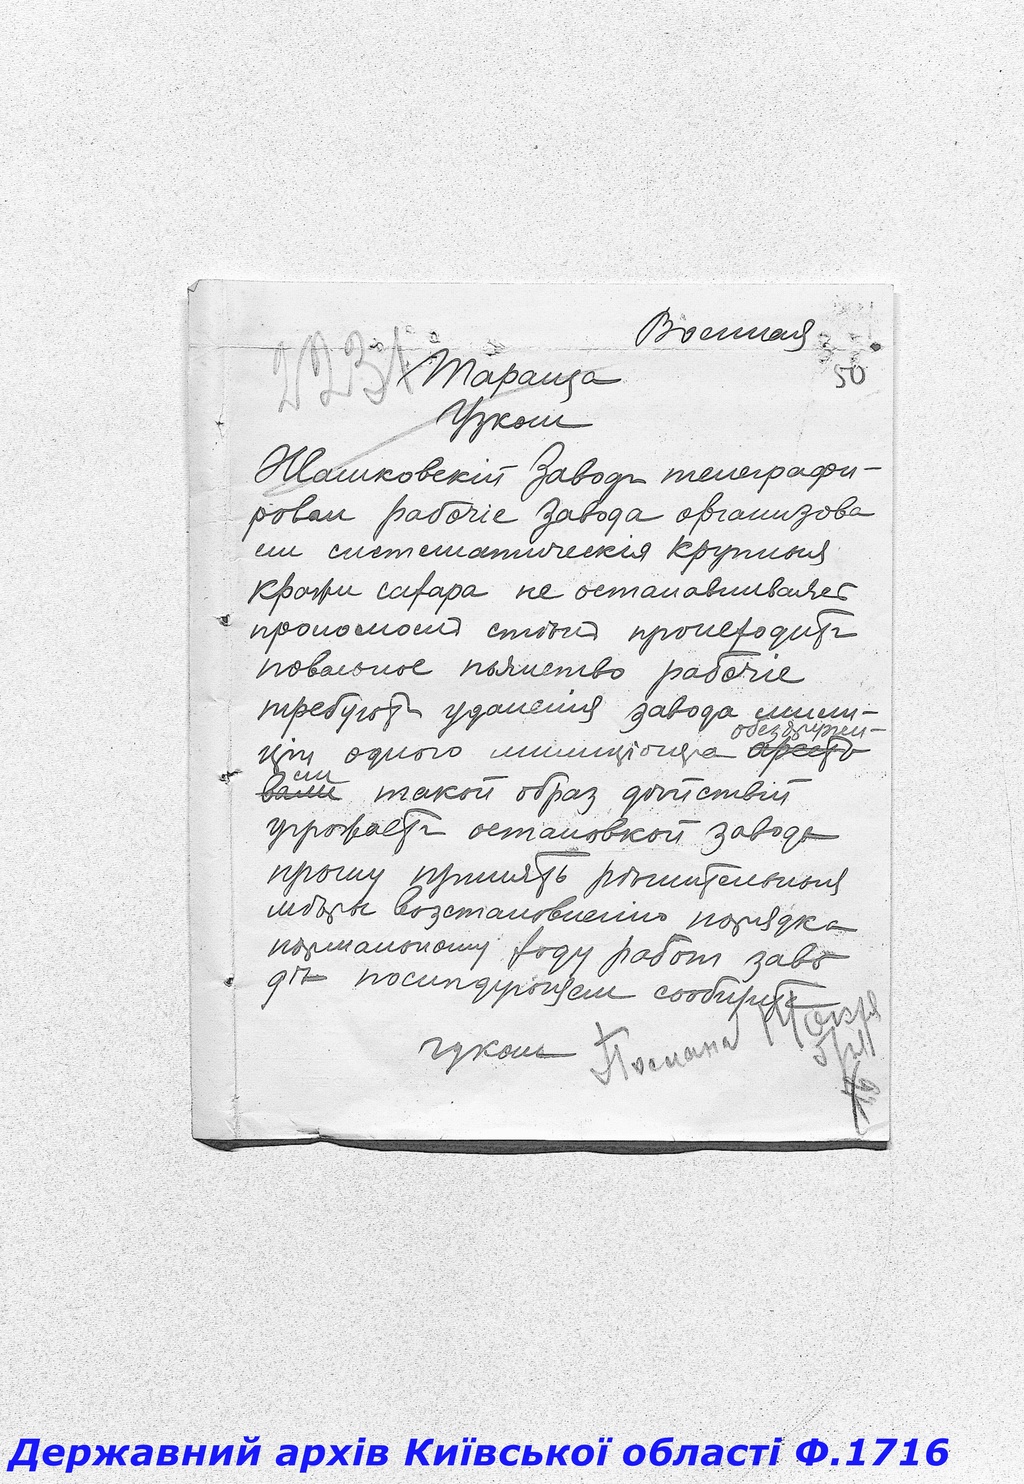 Военная
50
2234
Тараща
Уком
Жашковскій Заводъ телеграфи-
ровал рабочіе Завода организова
ли систематическія крупныя
кражи сахара не останавливаяс
проломом стѣны происходитъ
повальное пьянство рабочіе
требуютъ удаленія завода мили-
ціи одного милиціонера аресто
обезоружи-
вали ли такой образ дѣйствій
угрожаетъ остановкой завода
прошу принять рѣшительныя
мѣры возстановленію порядка
нормальному ходу работ заво
дѣ послѣдующем сообщите
губком Послана
Державний архів Київської області Ф.1716